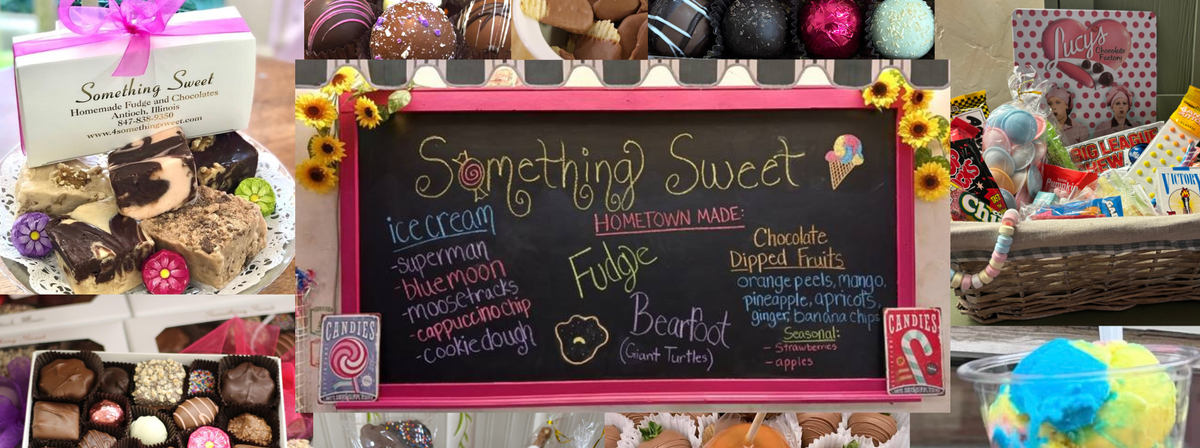 Something Sweet
Homemade Fudge and Chocolates
Antioch, Illinois
847-838-9350
www.4somethingsweet.com
Something Sweet
ice cream
-superman
-blue moon
-moosetracks
-cappuccino chip
-cookie dough
HOMETOWN MADE:
Fudge
Bearfoot
(Giant Turtles)
Chocolate
Dipped Fruits
orange peels, mango,
pineapple, apricots,
ginger, banana chips
Seasonal:
- Strawberries
- apples
CANDIES
CANDIES
Lucy's
Chocolate
Factory
BIG LEAGUE
CHEW
Pumpkin
VICTORY